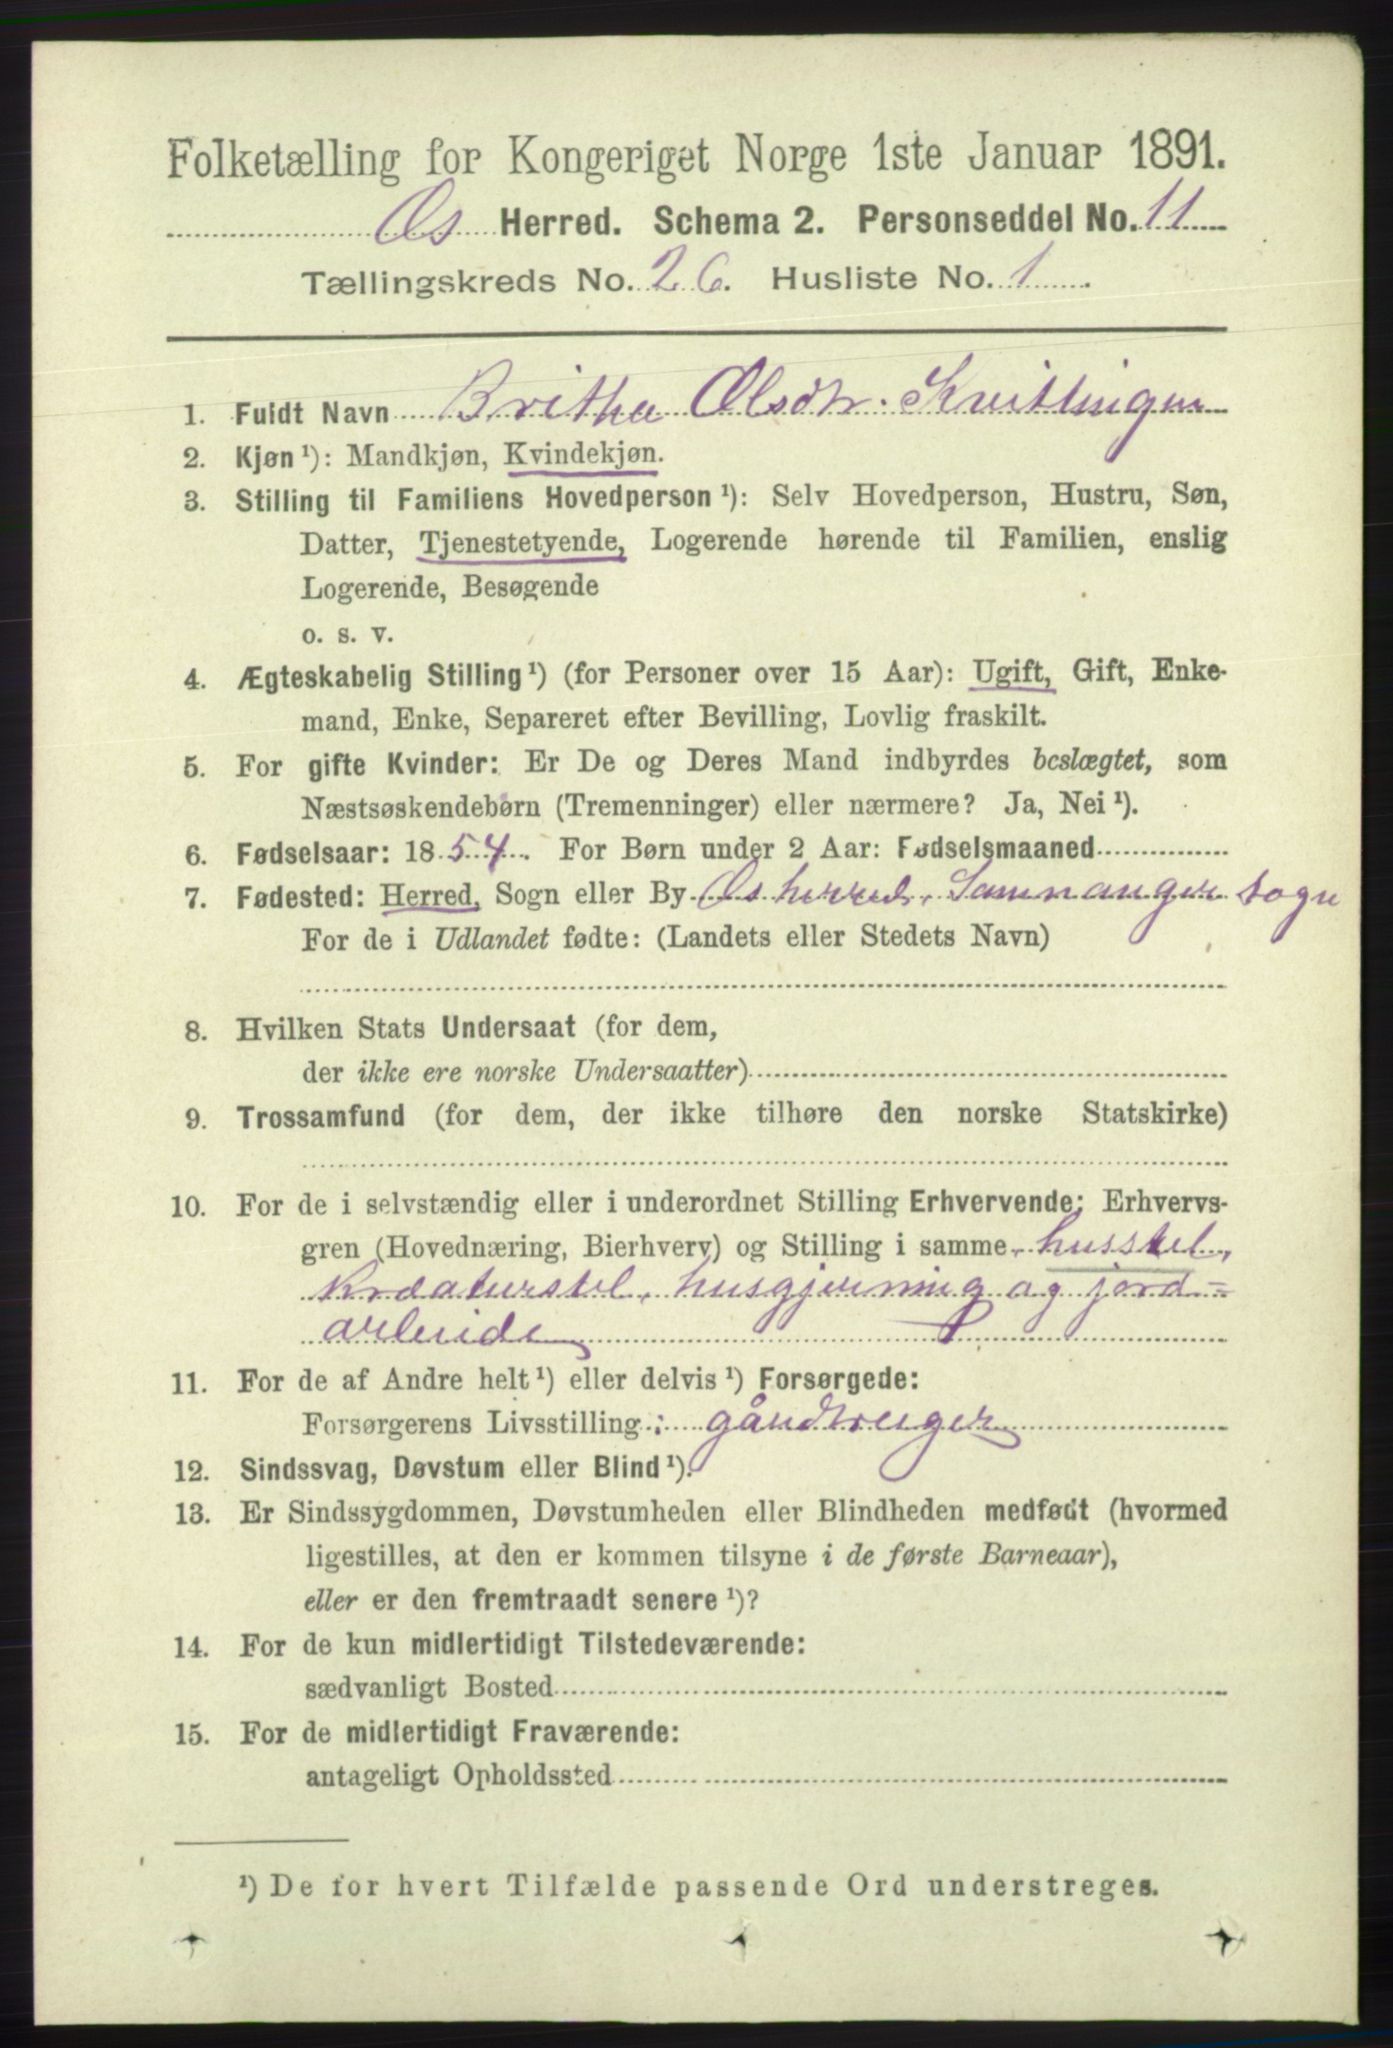 Folketælling for Kongeriget Norge 1ste Januar 1891.
Os Herred. Schema 2. Personseddel No. 11
Tællingskreds No. 26. Husliste No. 1.
1. Fuldt Navn Britha Olsdtr. Kvitlingen
2. Kjøn ¹): Mandkjøn, Kvindekjøn.
3. Stilling til Familiens Hovedperson ¹): Selv Hovedperson, Hustru, Søn,
Datter, Tjenestetyende, Logerende hørende til Familien, enslig
Logerende, Besøgende
o. s. v.
4. Ægteskabelig Stilling ¹) (for Personer over 15 Aar): Ugift, Gift, Enke-
mand, Enke, Separeret efter Bevilling, Lovlig fraskilt.
5. For gifte Kvinder: Er De og Deres Mand indbyrdes beslægtet, som
Næstsøskendebørn (Tremenninger) eller nærmere? Ja, Nei ¹).
6. Fødselsaar: 1854. For Børn under 2 Aar: Fødselsmaaned
7. Fødested: Herred, Sogn eller By Os herred, Samnanger sogn
For de i Udlandet fødte: (Landets eller Stedets Navn)
8. Hvilken Stats Undersaat (for dem,
der ikke ere norske Undersaatter)
9. Trossamfund (for dem, der ikke tilhøre den norske Statskirke)
10. For de i selvstændig eller i underordnet Stilling Erhvervende: Erhvervs-
gren (Hovednæring, Bierhverv) og Stilling i samme husstel,
kræaturstel, husgjerning og jord=
arbeide
11. For de af Andre helt ¹) eller delvis ¹) Forsørgede:
Forsørgerens Livsstilling:
12. Sindssvag, Døvstum eller Blind ¹).
13. Er Sindssygdommen, Døvstumheden eller Blindheden medfødt (hvormed
ligestilles, at den er kommen tilsyne i de første Barneaar),
eller er den fremtraadt senere ¹)?
14. For de kun midlertidigt Tilstedeværende:
sædvanligt Bosted
15. For de midlertidigt Fraværende:
antageligt Opholdssted
¹) De for hvert Tilfælde passende Ord understreges.